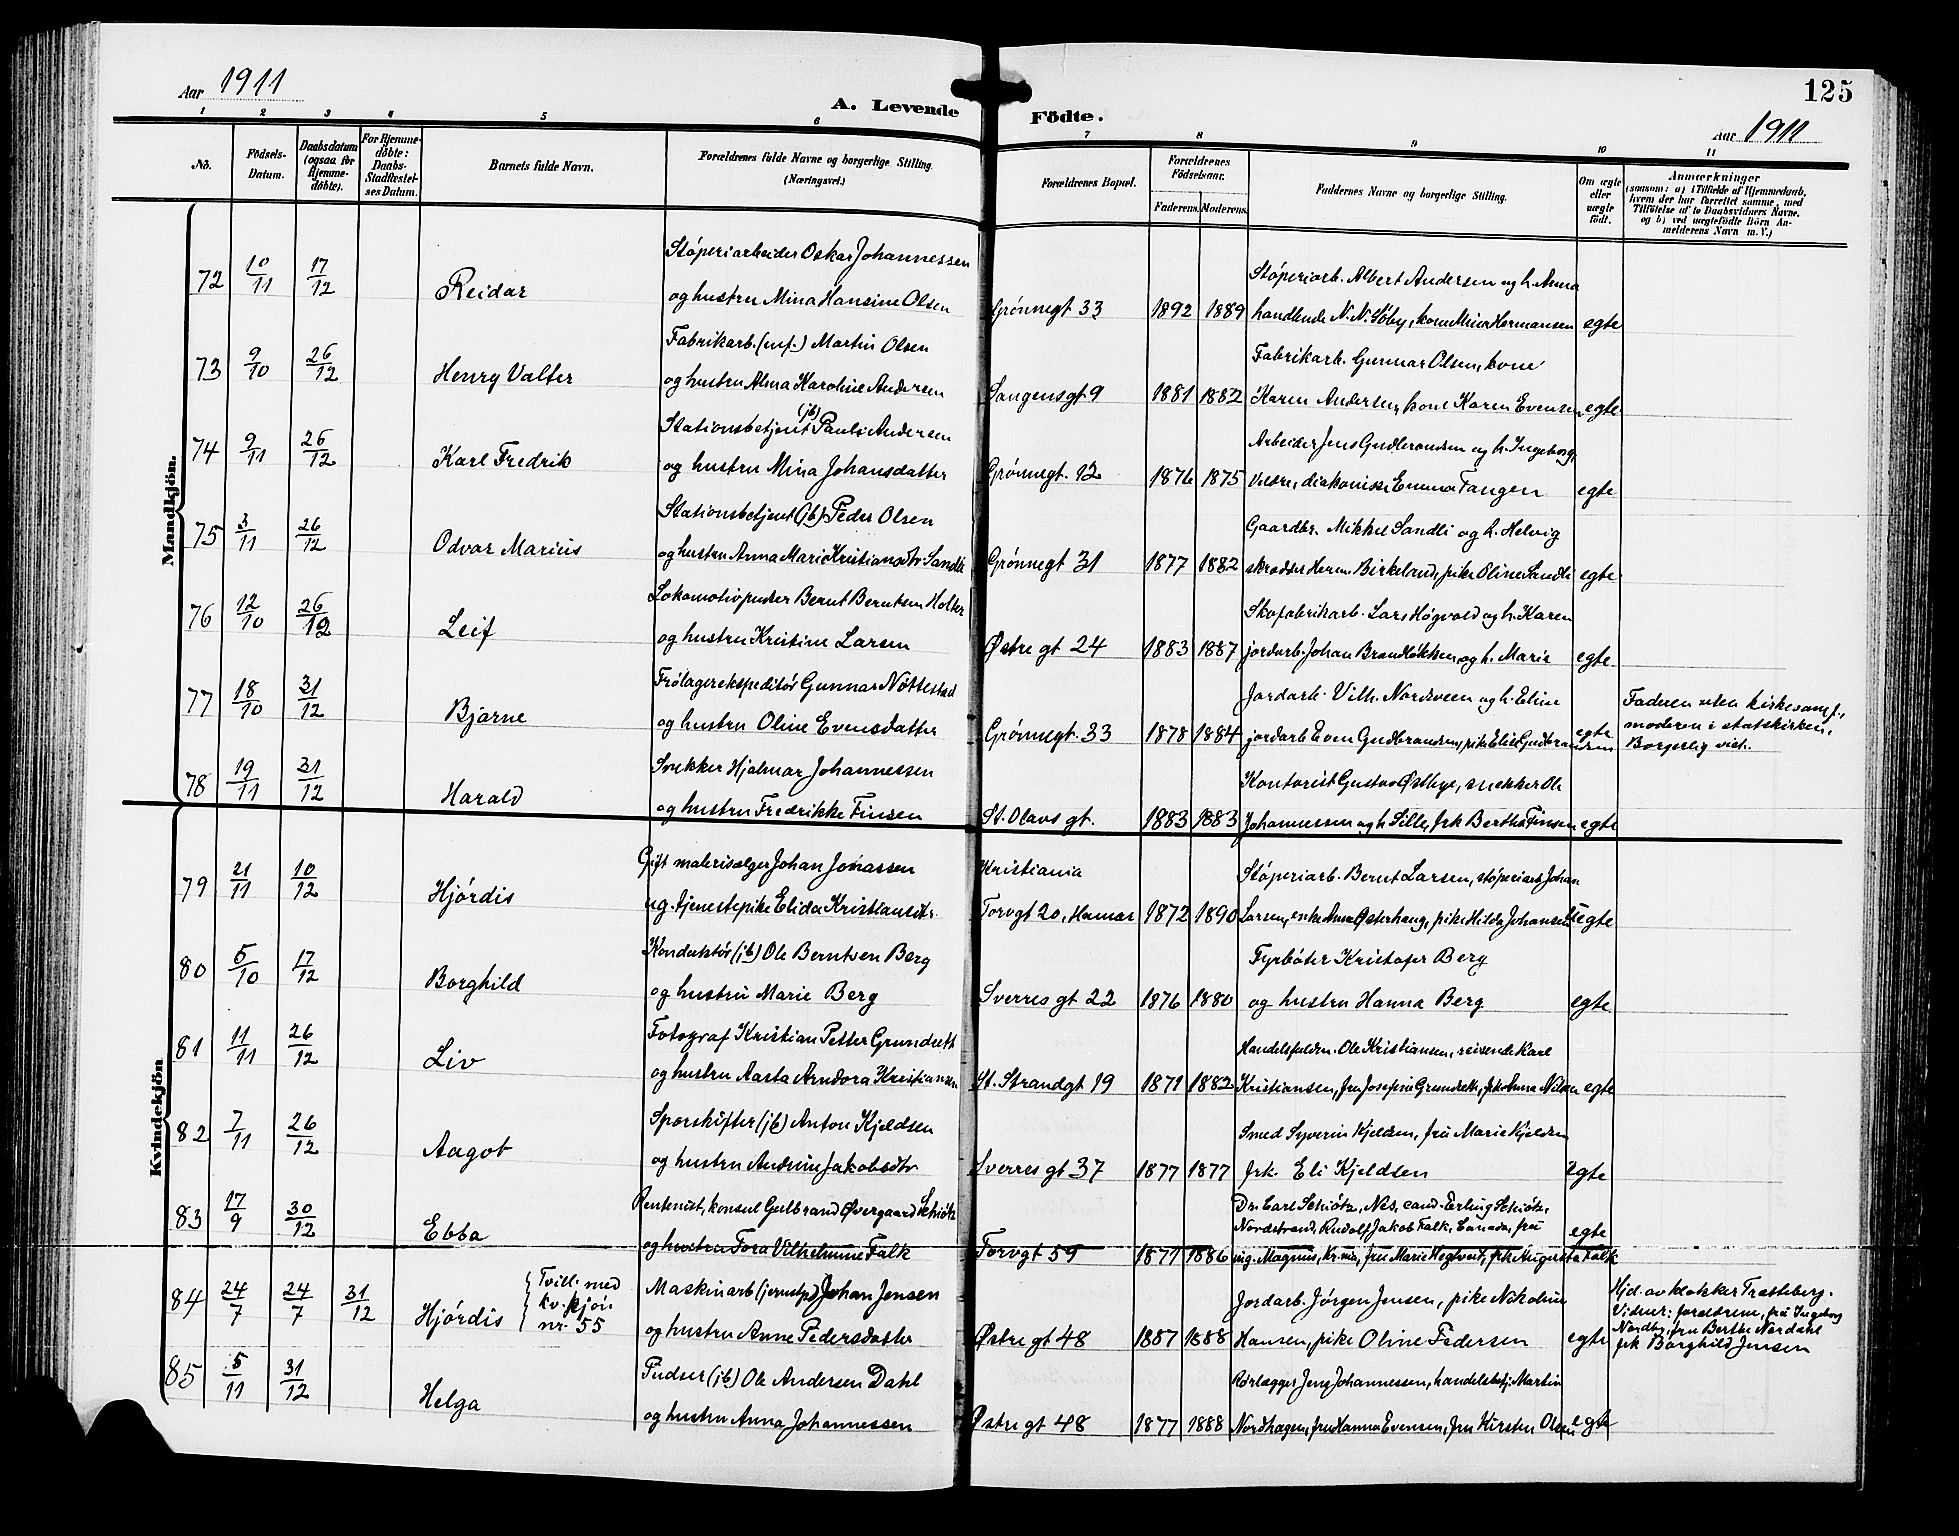 Aar 1911
A. Levende Födte.
125
Aar 1911
1 2 3 4 5 6 7 8 9 10 11
No.
Födsels-Datum.
Daabsdatum (ogsaa for Hjemme-döbte).
For Hjemme-döbte: Daabs-Stadfestel-ses Datum.
Barnets fulde Navn.
Forældrenes fulde Navne og borgerlige Stilling.
(Næringsvei.)
Forældrenes Bopæl.
Forældrenes Födselsaar.
Faderens. Moderens.
Faddernes Navne og borgerlige Stilling.
Om ægte eller uægte födt.
Anmærkninger
(saasom: a) i Tilfælde af Hjemmedaab,
hvem der har forrettet samme, med
Tilföielse af to Daabsvidners Navne.
og b) ved uægtefödte Börn An-
melderens Navn m. V.)
Mandkjön.
72 10/11 17/12 Reidar
Støperiarbeider Oskar Johannessen
og hustru Mina Hansine Olsen
Grønnegt 33 1892 1889
Støperiarb. Albert Andersen og h. Anna
handlende N. N. Søby, kone Mina Hermansen egte
73 9/10 26/12 Henry Valter
Fabrikarb. Martin Olsen
og hustru Alma Karoline Andersen
Sangensgt 9 1881 1882
Fabrikarb. Gunnar Olsen, kone
Karen Andersen, kone Karen Evensen egte
74 9/11 26/12 Karl Fredrik
Stationsbetjent (jb) Paul Andersen
og hustru Mina Johansdatter
Grønnegt. 12 1876 1875
Arbeider Jens Gudbrandsen og h. Ingeborg,
diakonisse Emma Tangen egte
75 3/11 26/12 Odvar Marius
Stationsbetjent (jb) Peder Olsen
og hustru Anna Marie Kristiansdtr. Sandli
Grønnegt 31 1877 1882
Gaardbr. Mikkel Sandli og h. Helvig
skrædder Herm. Birkeland, pike Oline Sandli egte
76 12/10 26/12 Leif
Lokomotivpudser Bernt Berntsen Holter
og hustru Kristine Larsen
Østre gt 24 1883 1887
Skofabrikarb. Lars Høgvold og h. Karen
jordarb. Johan Brandløkken og h. Marie egte
77 18/10 31/12 Bjarne
Frølagerekspeditør Gunnar Nøttestad
og hustru Oline Evensdatter
Grønnegt. 33 1878 1884
Jordarb. Vilh. Nordsveen og h. Eline
jordarb Even Gudbrandsen, pike Elise Gudbrandsen egte
Faderen uten kirkesamf.,
moderen i statskirken,
Borgerlig viet.
78 19/11 31/12 Harald
Snekker Hjalmar Johannessen
og hustru Fredrikke Finsen
St. Olavs gt. 1883 1883
Kontorist Gustav Østbye, snekker Ole
Johannessen og h Silla, frk Bertha Finsen egte
Kvindekjön
79 21/11 10/12 Hjördis
Gift materisælger Johan Jonassen
ug. tjenestepike Elida Kristiansdtr.
Kristiania
Torvgt 20, Hamar 1872 1890
Støperiarb. Bernt Larsen, støperiarb Johan
Larsen, enke Anna Østerhaug, pike Hilda Johansen uegte
80 5/10 17/12 Borghild
Konduktør (jb) Ole Berntsen Berg
og hustru Marie Berg
Sverres gt 22 1876 1880
Fyrbøter Kristofer Berg
og hustru Hanna Berg egte
81 11/11 26/12 Liv
Fotograf Kristian Petter Grundseth
og hustru Aasta Arndora Kristiansen
St. Strandgt 19 1871 1882
Handelsfuldm. Ole Kristiansen, reisende Karl
Kristiansen, fru Josefine Grundseth, frk Anna Nilsen egte
82 7/11 26/12 Aagot
Sporskifter (jb) Anton Kjeldsen
og hustru Andrine Jakobsdtr
Sverres gt 37 1877 1877
Smed Syverin Kjeldsen, fru Marie Kjeldsen
frk. Eli Kjeldsen egte
83 17/9 30/12 Ebba
Rentenist, konsul Gulbrand Øvergaard Schiøtz
og hustru Tora Vilhelmine Falk
Torvgt 59 1871 1886
Dr. Carl Schiøtz, Nes, cand. Erling Schiøtz,
Nordstrand, Rudolf Jakob Falk, Canada, fru
ing. Magnus, Kr.nia, fru Marie Hegtveit, frk Augusta Falk egte
84 24/7 24/7 31/12 Hjördis
Tvill. med
kv. kjön
nr. 55
Maskinarb (jernstp) Johan Jensen
og hustru Anne Pedersdatter
Østre gt 48 1887 1888
Jordarb. Jørgen Jensen, pike Nikoline
Hansen, pike Oline Pedersen egte
Hjd. av klokker Trætteberg.
Vidner: forældrene, fru Ingeborg
Nordby, fru Berthe Nordahl
frk Borghild Jensen
85 5/11 31/12 Helga
Pudser (jb) Ole Andersen Dahl
og hustru Anna Johannessen
Østre gt 48 1877 1888
Rørlægger Jens Johannessen, handelsbetj. Martin
Nordhagen, fru Hanna Evensen, fru Kirsten Olsen egte